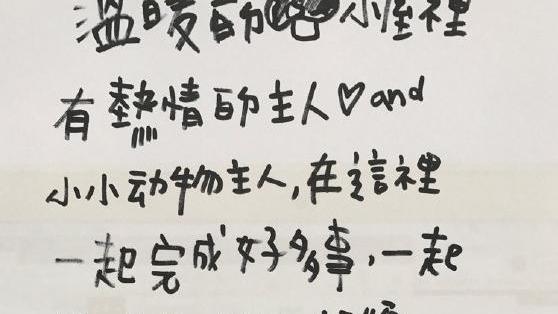 溫暖的小屋裡
有熱情的主人♡and
小小动物主人,在這裡
一起完成好多事,一起